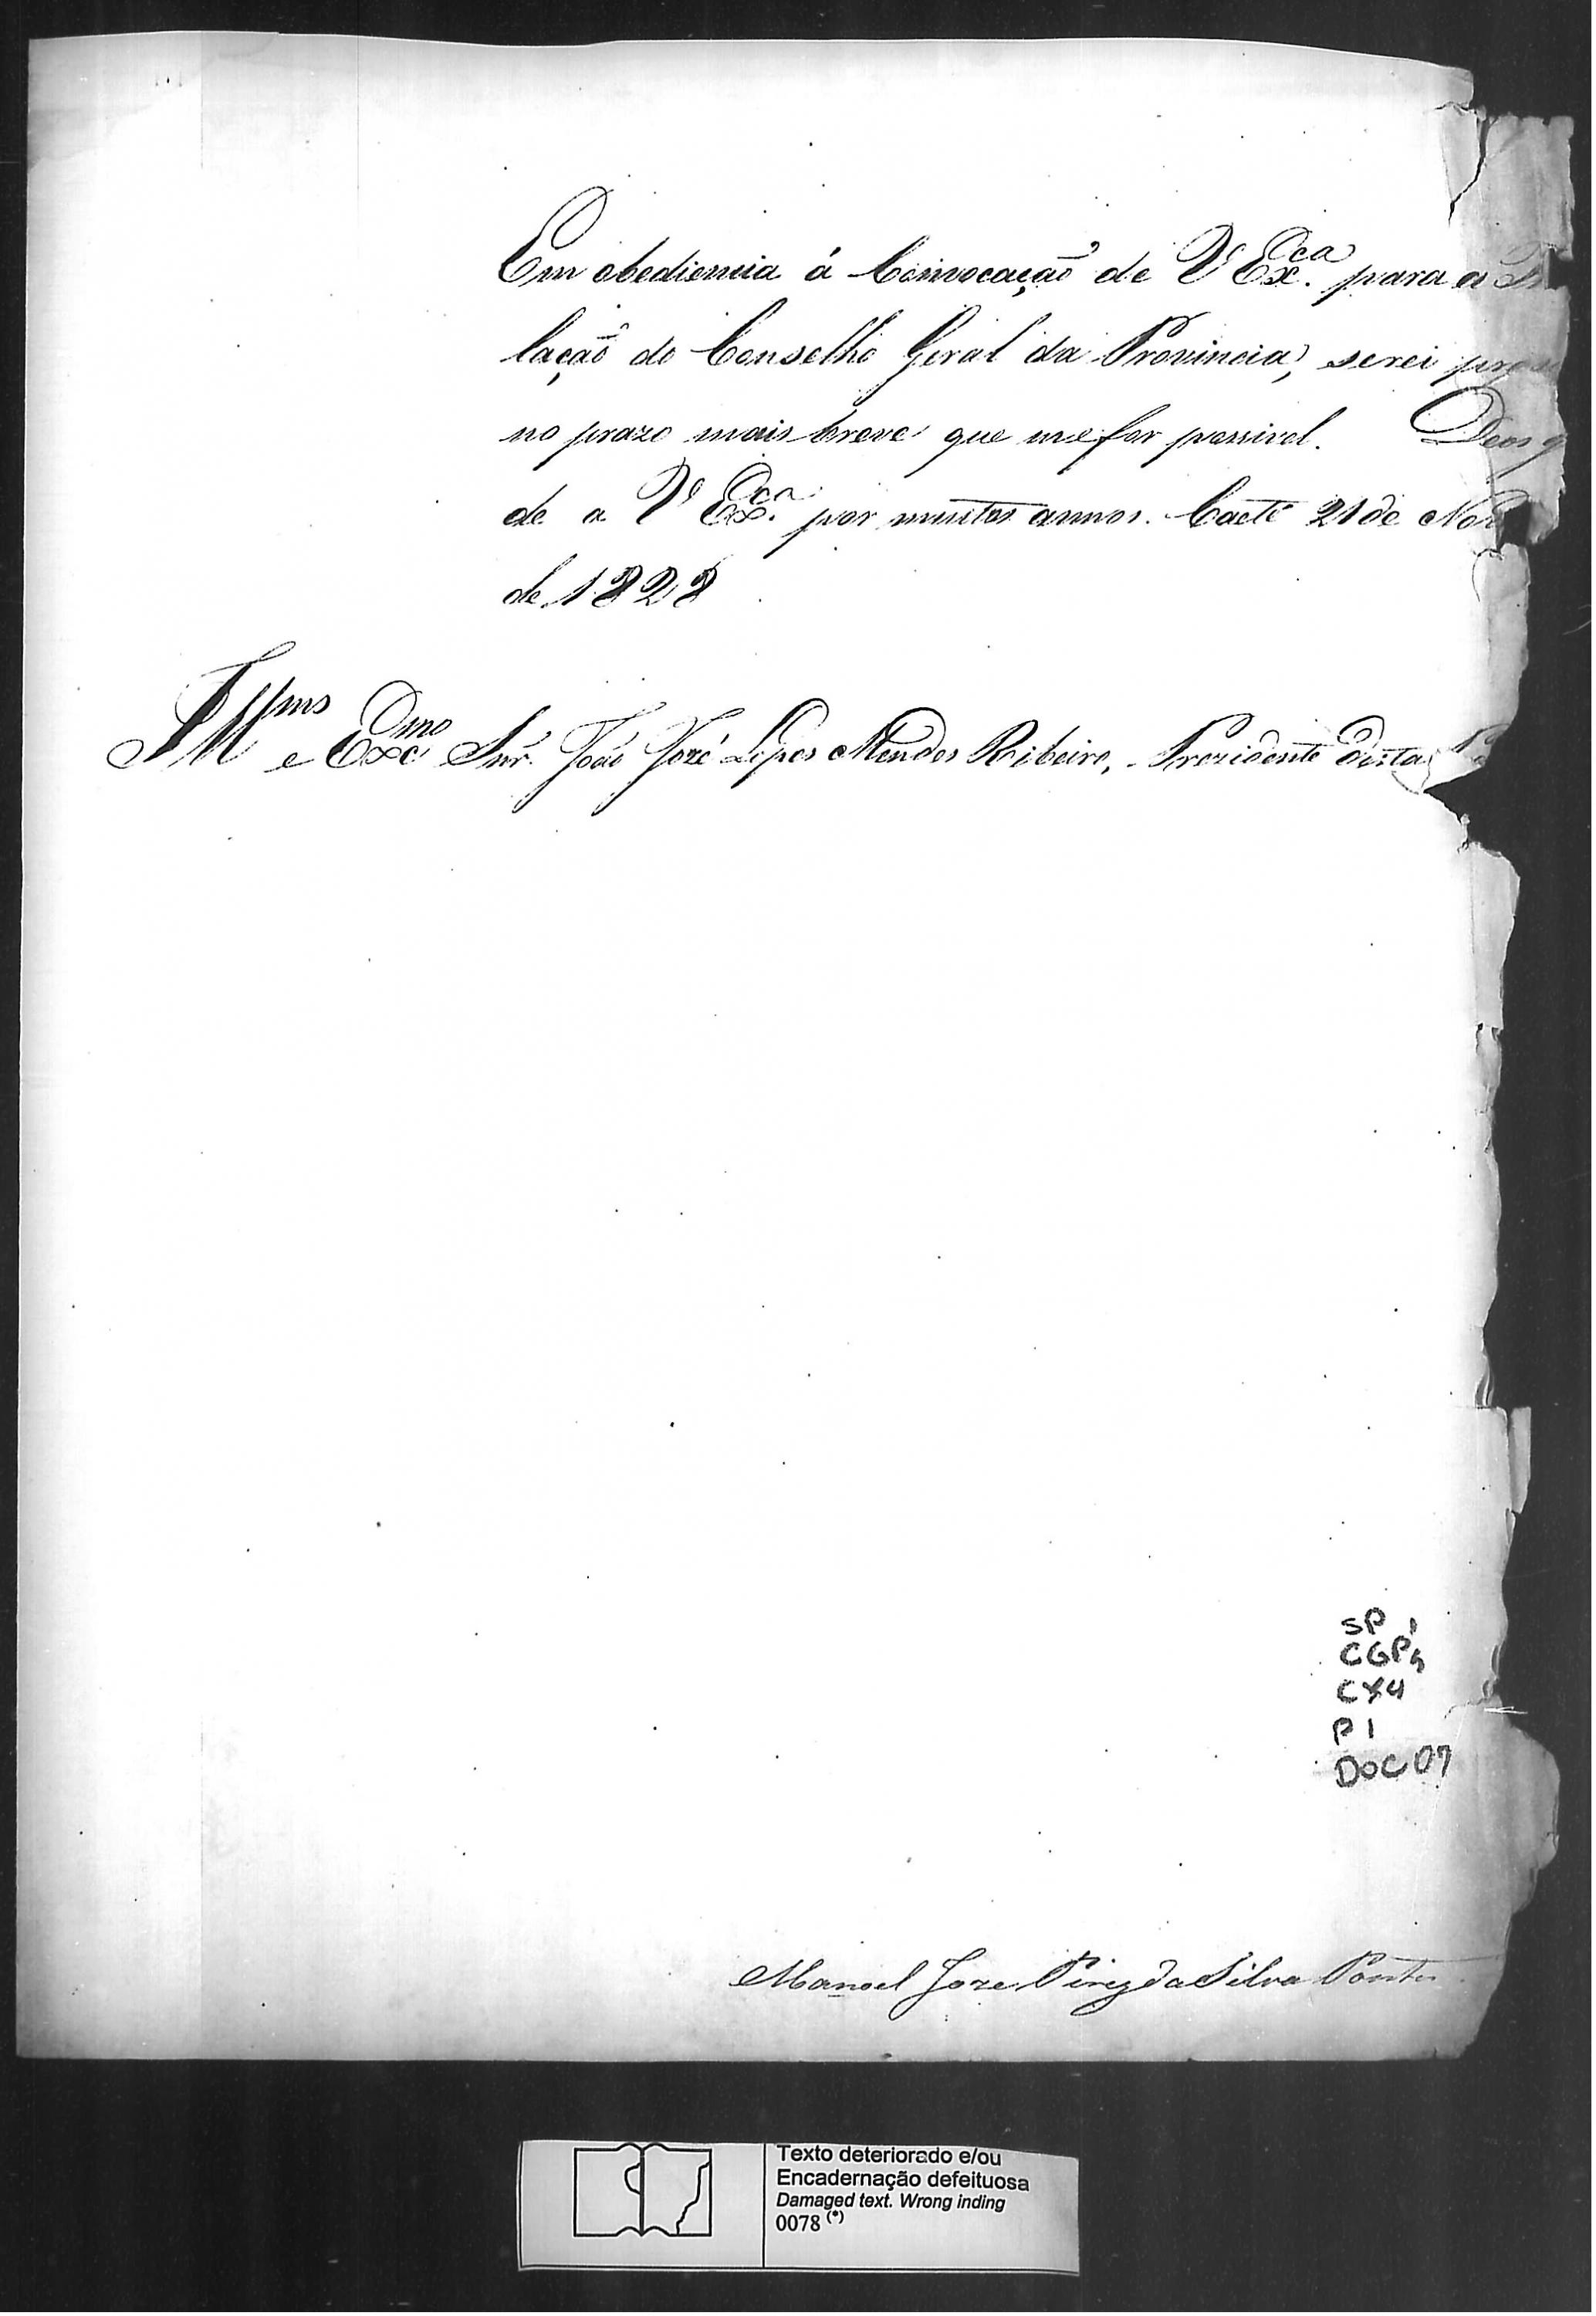 Em obediencia á Convocação de V Ex.ca para a
lação do Conselho Geral da Provincia, serei
no prazo mais breve que me for possivel. Deos g
de a V Ex.ca por muitos annos. Caeté 21 de Nov
de 1828
Illmo e Exmo Snr. João Jozé Lopes Mendes Ribeiro, Prezidente desta
SP 1
CGP 5
CX 4
P 1
DOC 07
Manoel Joze Pires da Silva Pontes
Texto deteriorado e/ou
Encadernação defeituosa
Damaged text. Wrong inding
0078 (*)